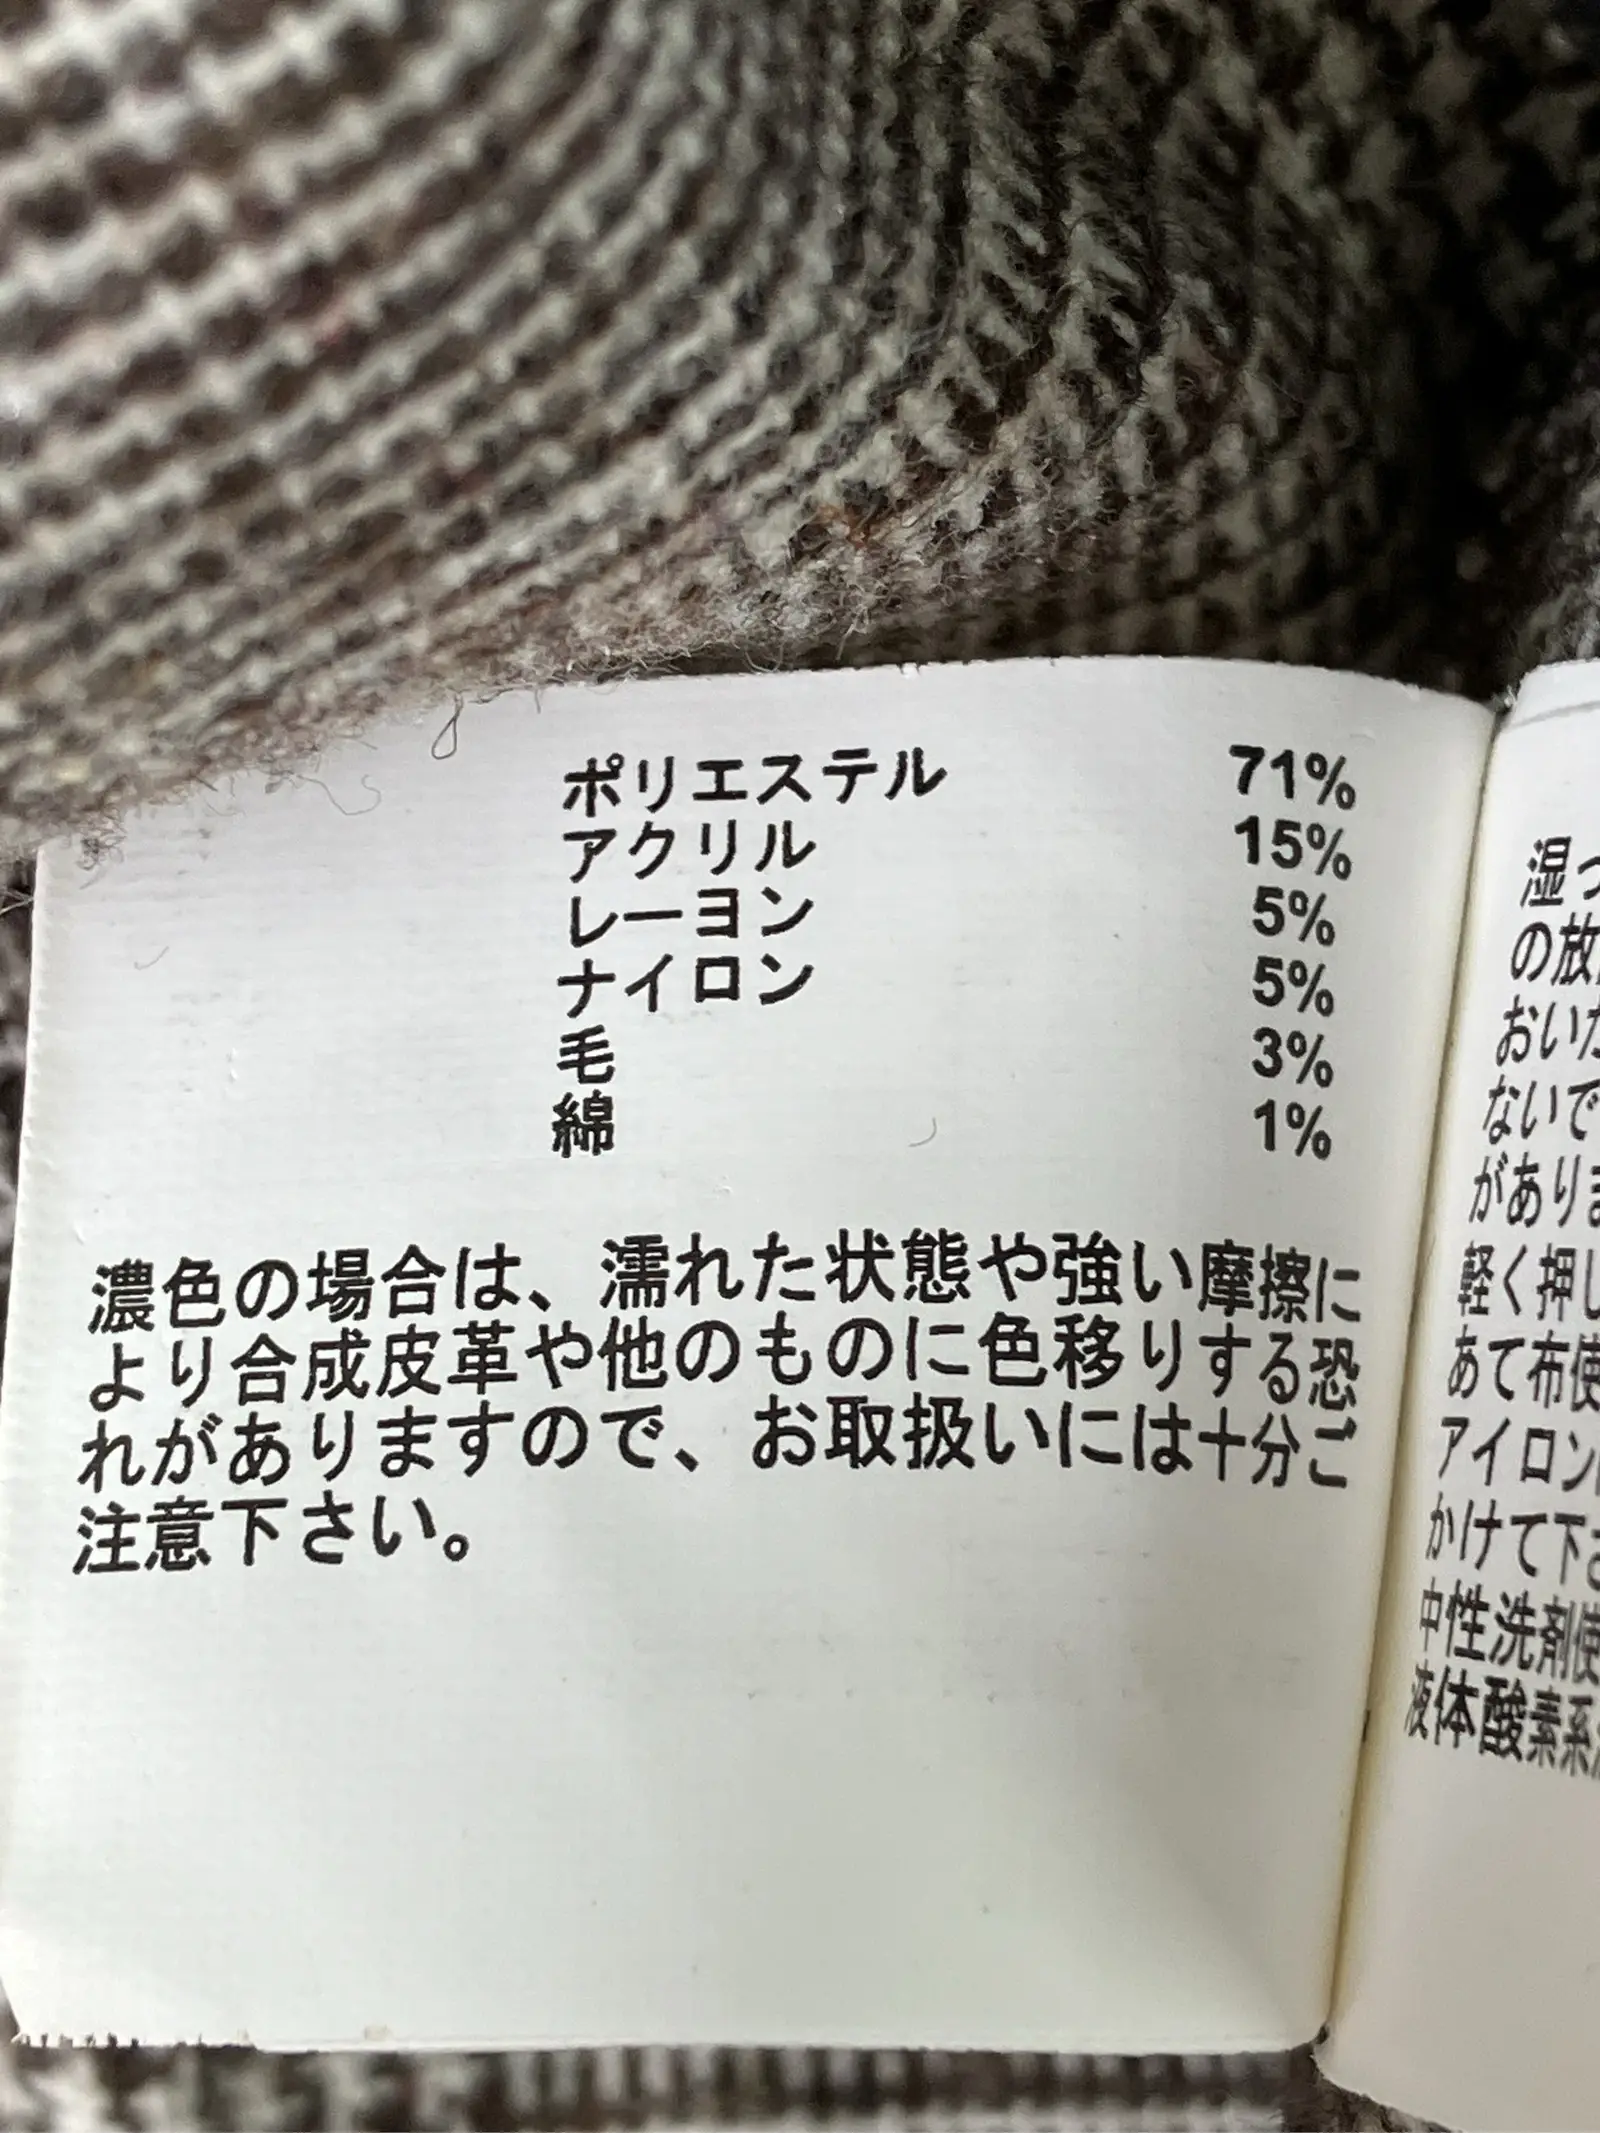 ポリエステル 71%
アクリル 15%
レーヨン 5%
ナイロン 5%
毛 3%
綿 1%
濃色の場合は、濡れた状態や強い摩擦に
より合成皮革や他のものに色移りする恐
れがありますので、お取扱いには十分ご
注意下さい。
湿っ
の放
おいた
ないで
がありま
軽く押し
あて布使
アイロン
かけて下さ
中性洗剤使
液体酸素系